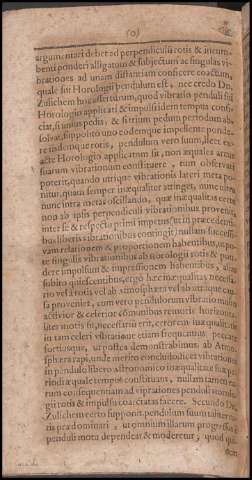 (0)
argumentari debet ad perpendiculū rotis & incum-
benti ponderi alligatum & subjectum ac singulis vi-
brationes ad unam distantiam conficere coactum,
quale sui Horologii pendulum est, nec credo Dn.
Zulichem hoc assertum, quod vibratio penduli sui
Horologio applicati & impulsi idem tempus confi-
ciat, si unius pedis, & si trium pedum periodum ab-
solvat, supposito uno eodemque impellente ponde-
re iisdemque rotis, pendulum vero suum, licet ex-
acte Horologio applicatum sit, non æquales arcus
suarum vibrationum constituere, cum observari
poterit, quando utrique vibrationis lateri meta po-
nitur, quam semper inæqualiter attinget, nunc ultra
nunc intra metas oscillando, quæ inæqualitas certe
non ab ipsis perpendiculi vibrationibus provenit,
inter se & respectu primi impetus (ut in præceden-
bus liberis vibrationibus contingit) nullam successi-
vam relationem & proportionem habentibus, utpo-
te singulis vibrationibus ab horologii rotis & pon-
dere impulsum & impressionem habentibes, alias
subito quiescentibus, ergo hæc inæqualitas necessa-
rio vel à rotis vel ab atmosphæra vel ab utraque cau-
sa proveniet, cum vero pendulorum vibratio multo
activior & celerior omnibus remotis horizonta-
liter motis sit, necessariū erit, errorem inæqualitatis
in tam celeri vibratione etiam frequentius percipi
sortiatque, ut postea demonstrabimus, ab Atmo-
sphæra rapi, unde merito concludo licet vibrationes
in pendulo libero astronomico inæqualitate sua pe-
riodi æquale tempus constituant, nullam tamen ea-
rum consequentiam ad vibrationes penduli horolo-
gii rotis & impulsu coactatas facere. Secundo Dn.
Zulichem certo supponit pendulum suum taliter ro-
tis prædominari, ut omnium illarum progressio à
penduli motu dependeat & moderetur, quod qui-
dem